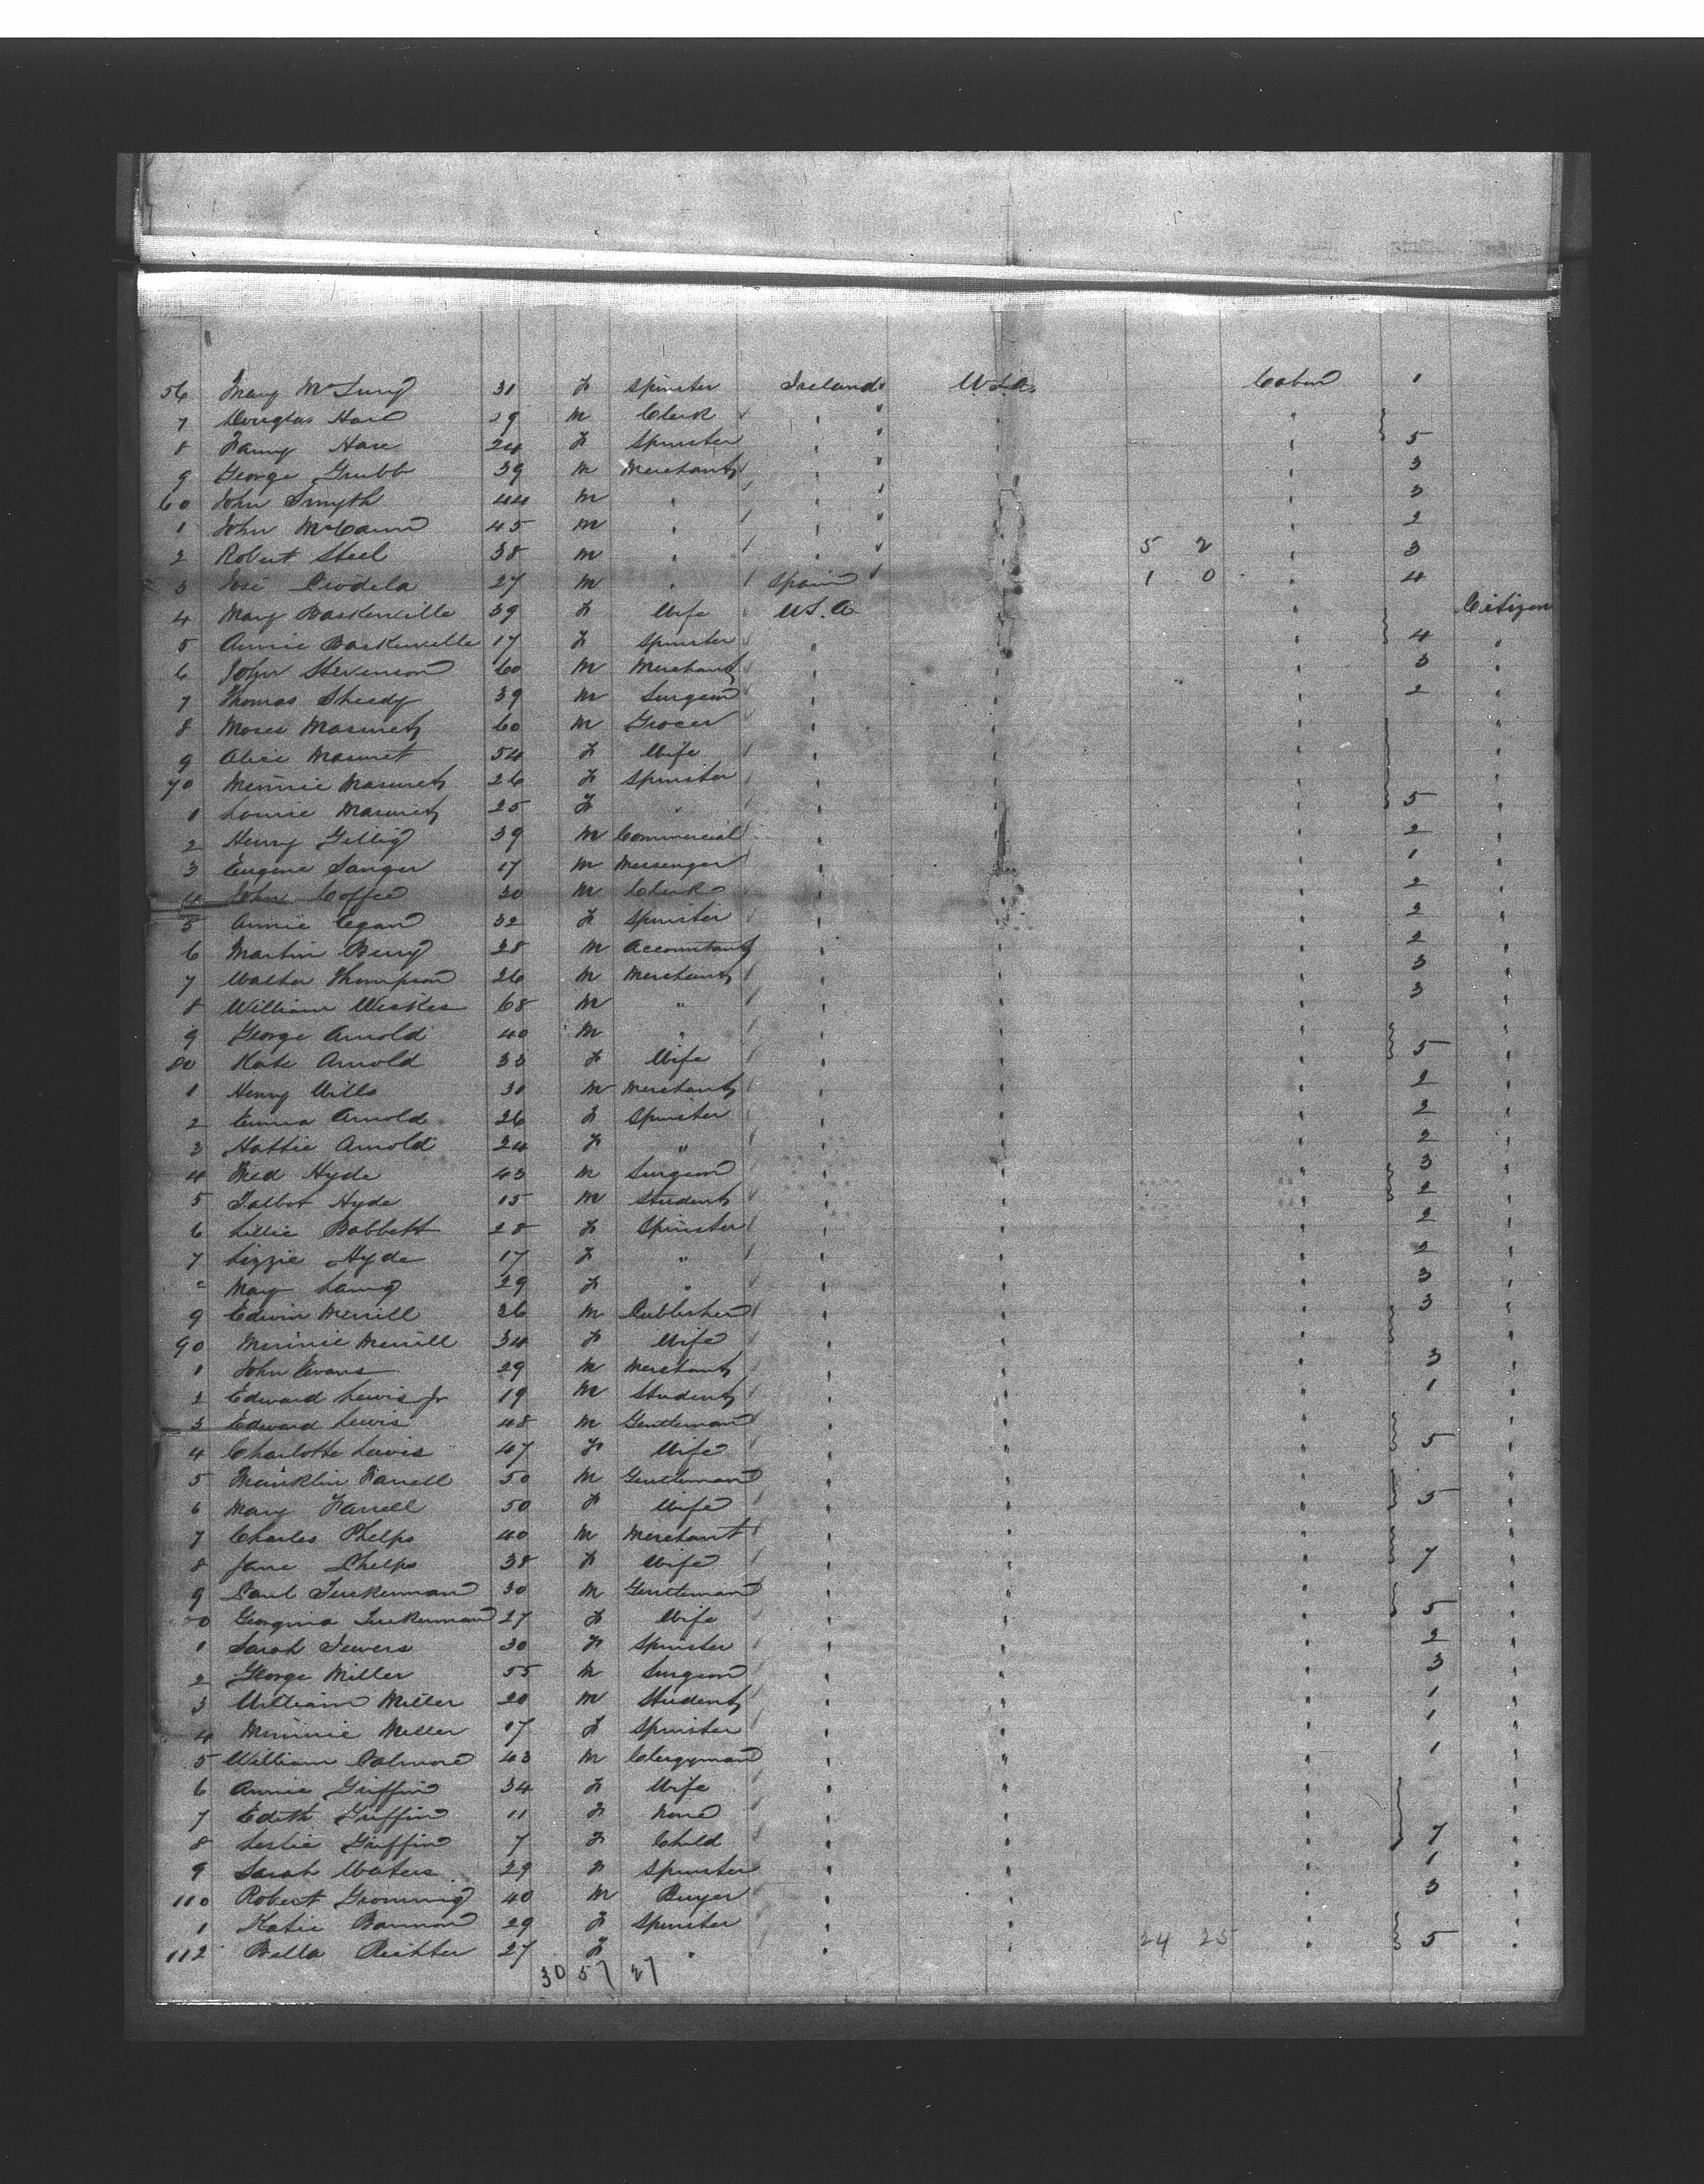 56 Mary McLung 31 F Spinster Ireland U.S.A. Cabin 1
7 Douglas Hare 29 M Clerk " " "
8 Fanny Hare 24 F Spinster " " " 5
9 George Grubb 39 M Merchant " " " 3
60 John Smyth 44 M " " " " 3
1 John McCann 45 M " " " " 2
2 Robert Steel 38 M " " " 5 2 " 3
3 José 27 M " Spain " 1 0 " 4
4 Mary Baskerville 39 F Wife U.S.A. " " Citizen
5 Annie Baskerville 17 F Spinster " " " 4 "
6 John Stevenson 60 M Merchant " " " 3 "
7 Thomas Sheedy 39 M Surgeon " " " 2 "
8 Moses 60 M Grocer " " " "
9 Alice 54 F Wife " " " "
70 Minnie 26 F Spinster " " " "
1 Louise 25 F " " " " 5 "
2 Henry Gillig 39 M Commercial " " " 2 "
3 Eugene Sanger 17 M Messenger " " " 1 "
4 John Coffee 30 M Clerk " " " 2 "
5 Annie Egan 32 F Spinster " " " 2 "
6 Martin Berry 28 M Accountant " " " 2 "
7 Walter Thompson 26 M Merchant " " " 3 "
8 William Weekes 68 M " " " " 3 "
9 George Arnold 40 M " " " " "
80 Kate Arnold 33 F Wife " " " 5 "
1 Henry Wills 31 M Merchant " " " 2 "
2 Emma Arnold 26 F Spinster " " " 2 "
3 Hattie Arnold 24 F " " " " 2 "
4 Fred Hyde 43 M Surgeon " " " 3 "
5 Talbot Hyde 15 M Student " " " 2 "
6 Lillie Babbett 28 F Spinster " " " 2 "
7 Lizzie Hyde 17 F " " " " 2 "
Mary Laing 29 F " " " " 3 "
9 Edwin Merrill 36 M Publisher " " " 3 "
90 Minnie Merrill 34 F Wife " " " "
1 John Evans 29 M Merchant " " " 3 "
2 Edward Lewis Jr 19 M Student " " " 1 "
3 Edward Lewis 48 M Gentleman " " " "
4 Charlotte Lewis 47 F Wife " " " 5 "
5 Franklin Farrell 50 M Gentleman " " " "
6 Mary Farrell 50 F Wife " " " 5 "
7 Charles Phelps 40 M Merchant " " " "
8 Jane Phelps 38 F Wife " " " 7 "
9 Paul Tuckerman 30 M Gentleman " " " "
0 Georgina Tuckerman 27 F Wife " " " 5 "
1 Sarah Sewers 30 F Spinster " " " 2 "
2 George Miller 55 M Surgeon " " " 3 "
3 William Miller 20 M Student " " " 1 "
4 Minnie Miller 17 F Spinster " " " 1 "
5 William 43 M Clergyman " " " 1 "
6 Annie Griffin 34 F Wife " " " "
7 Edith Griffin 11 F None " " " "
8 Leslie Griffin 7 F Child " " " 7 "
9 Sarah Waters 29 F Spinster " " " 1 "
110 Robert Gromming 40 M Buyer " " " 3 "
1 Katie Bannon 29 F Spinster " " " "
112 Bella Richter 27 F " " " 24 25 " 5 "
30 57 27